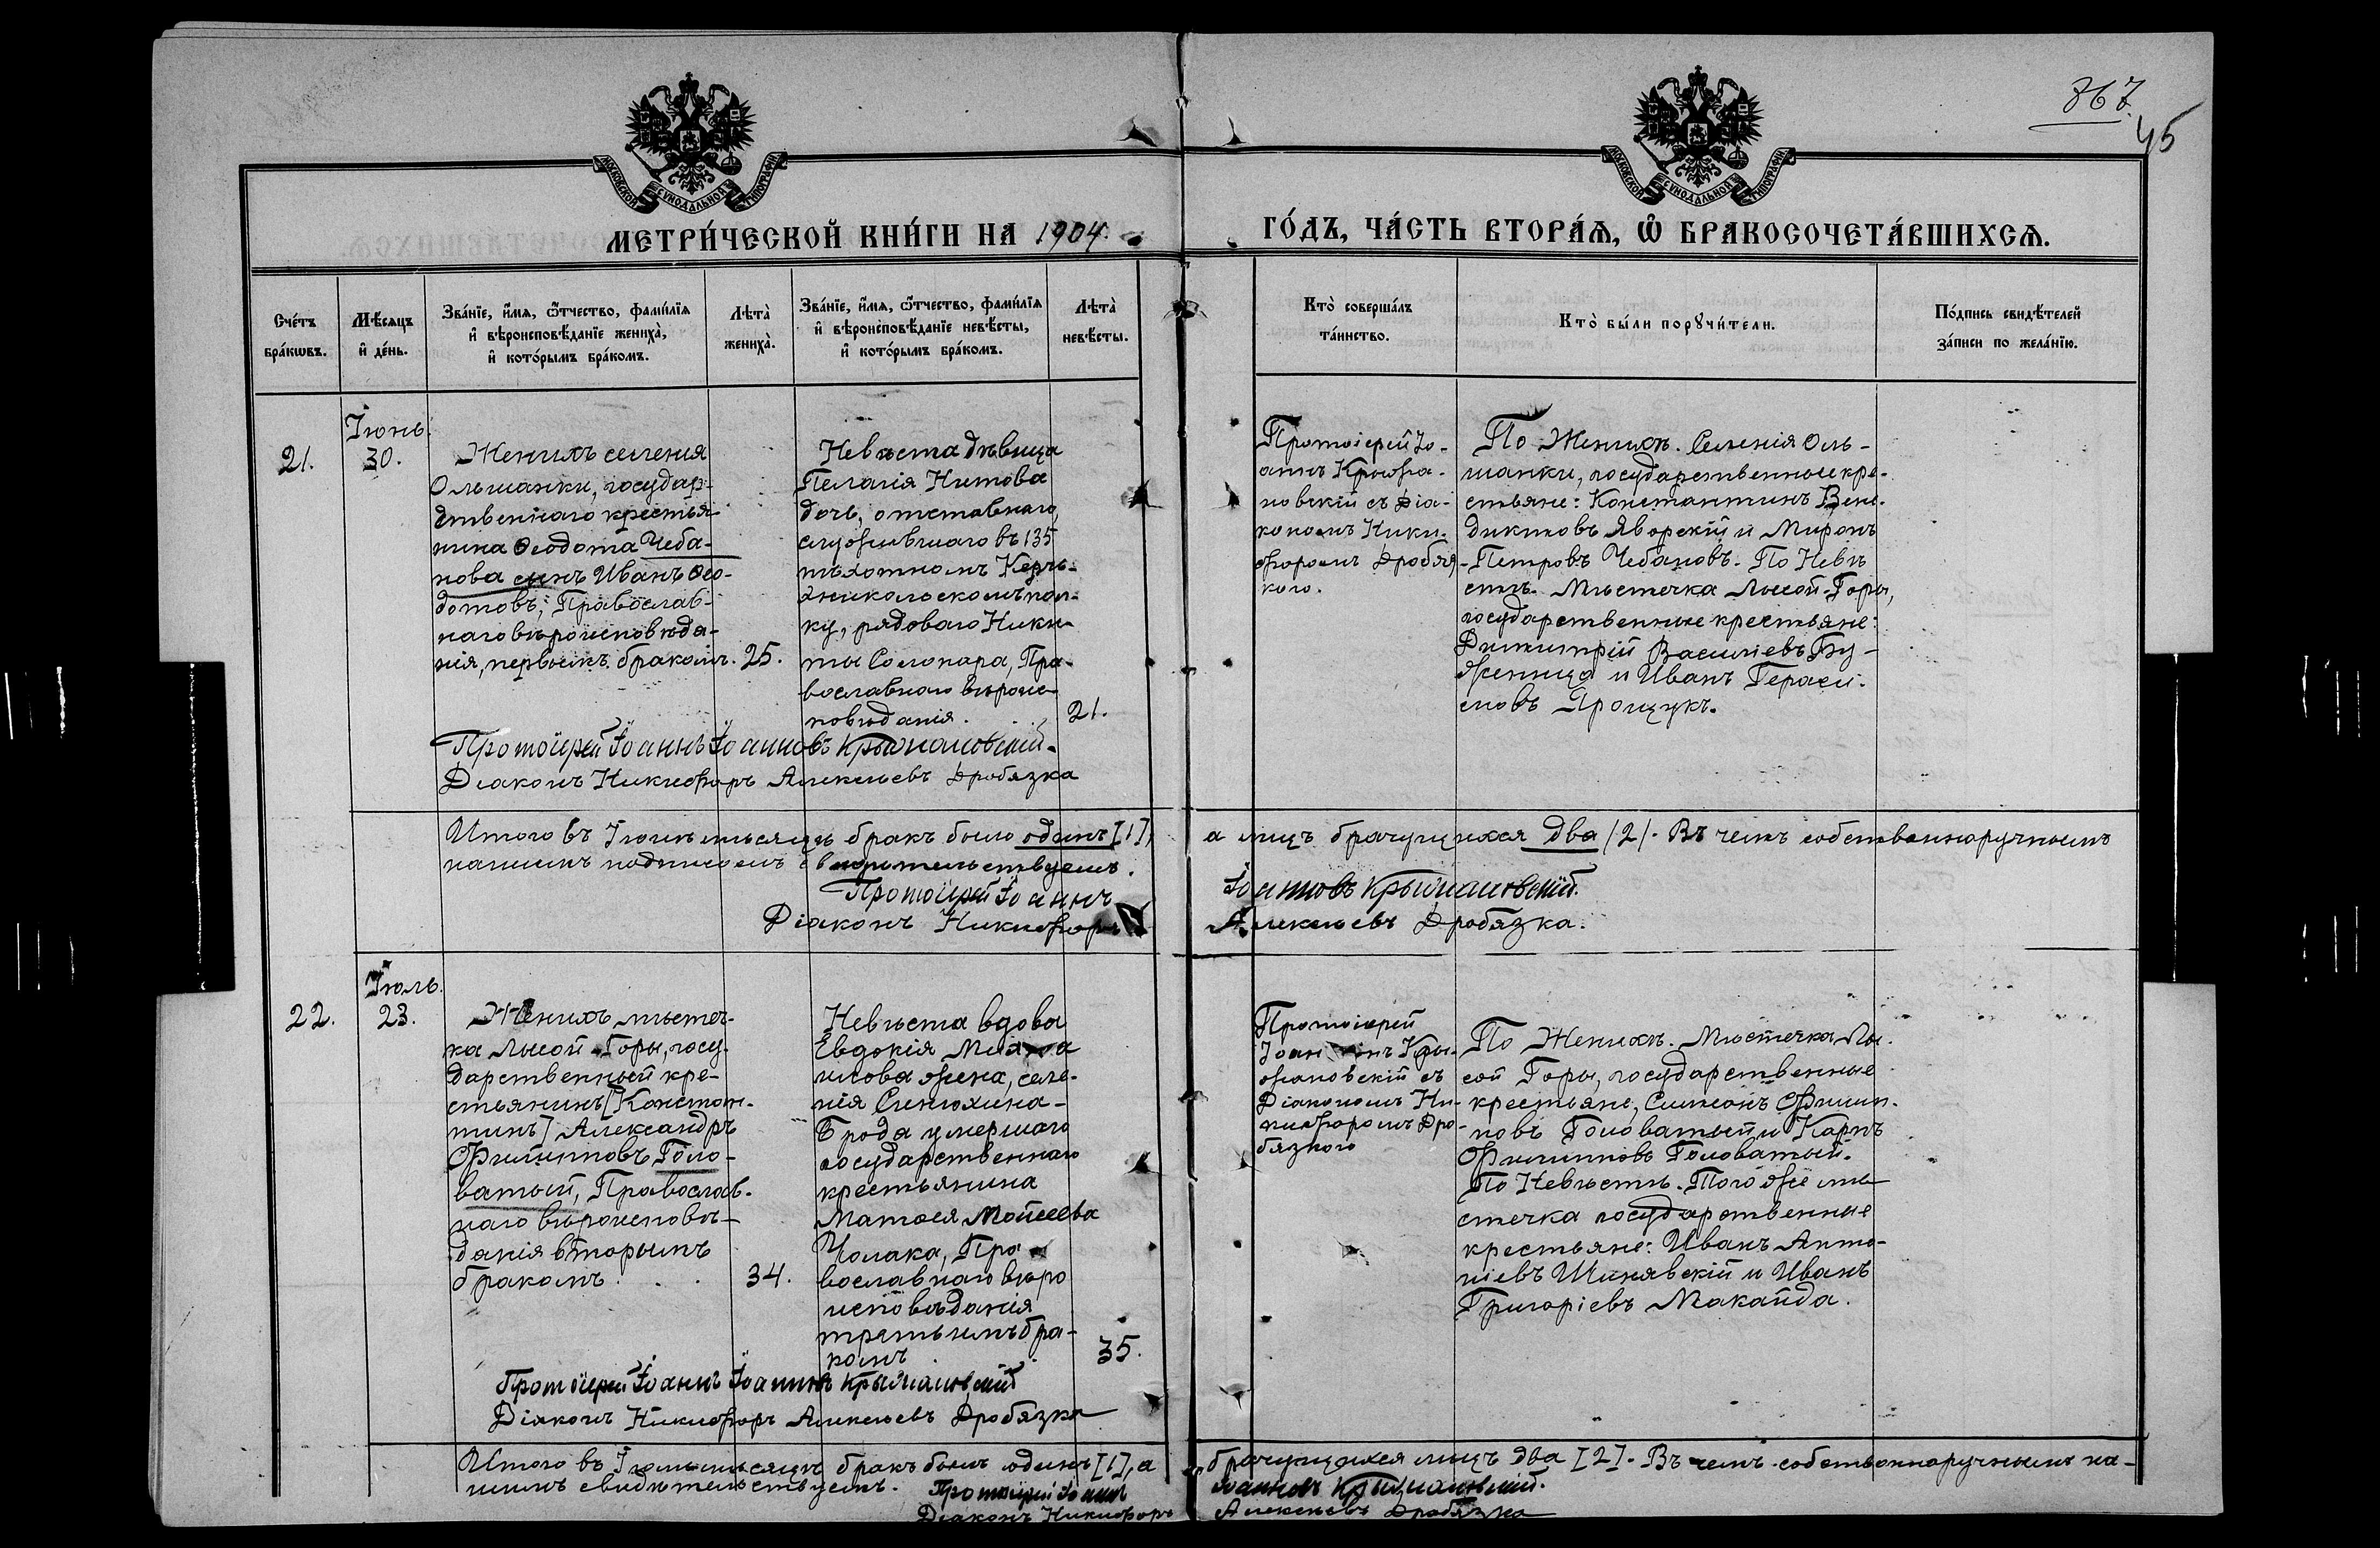 867.
45
МОСКОВСКОЙ СУНОДАЛЬНОЙ ТИПОГРАФІИ
МОСКОВСКОЙ СУНОДАЛЬНОЙ ТИПОГРАФІИ
МЕТРИ́ЧЕСКОЙ КНИ́ГИ НА 1904.
ГО́ДЪ, ЧА́СТЬ ВТОРА́Ѧ, Ѽ БРАКОСОЧЕТА́ВШИХСѦ.
Сче́тъ
бра́кѡвъ.
Мѣ́сяцъ
и҆ де́нь.
Зва́нїе, и҆́мѧ, ѻ҆́тчество, фами́лїѧ
и҆ вѣроисповѣ́данїе жениха̀,
и҆ кото́рымъ бра́комъ.
Лѣта̀
жениха̀.
Зва́нїе, и҆́мѧ, ѻ҆́тчество, фами́лїѧ
и҆ вѣроисповѣ́данїе невѣ́сты,
и҆ кото́рымъ бра́комъ.
Лѣта̀
невѣ́сты.
Кто̀ соверша́лъ
та́инство.
Кто̀ бы́ли порꙋчи́тели.
По́дпись свидѣ́телей
за́писи по жела́нїю.
21.
Іюнь.
30.
Женихъ селенія
Ольшанки, государ-
ственнаго крестья-
нина Ѳеодота Чеба-
нова сынъ Иванъ Ѳео-
дотовъ, Православ-
наго вѣроисповѣда-
нія, первымъ бракомъ.
25.
Невѣста дѣвица
Пелагія Никитова
дочь, отставнаго,
служившаго въ 135
пѣхотномъ Керчь-
Эникольскомъ пол-
ку, рядоваго Ники-
ты Солонара, Пра-
вославнаго вѣроис-
повѣданія.
21.
Протоіерей Іо-
аннъ Крыжа-
новскій съ діа-
кономъ Ники-
форомъ Дробяз-
кою.
По Женихѣ. Селенія Оль-
шанки, государственные кре-
стьяне: Константинъ Вене-
диктовъ Яворскій и Миронъ
Петровъ Чебановъ. По Невѣ
стѣ. Мѣстечка Лысой-Горы,
государственные крестьяне:
Димитрій Василіевъ Бу-
женица и Иванъ Гераси-
мовъ Прощукъ.
Протоіерей Іоаннъ Іоанновъ Крыжановскій.
Діаконъ Никифоръ Алексѣевъ Дробязка
Итого въ Іюнѣ мѣсяцѣ бракъ было одинъ [1],
а лицъ брачущихся два /2/. Въ чемъ собственноручнымъ
нашимъ подписомъ свидѣтельствуемъ.
Протоіерей Іоаннъ
Іоанновъ Крыжановскій.
Діаконъ Никифоръ
Алексѣевъ Дробязка.
22.
Іюль.
23.
Женихъ мѣстеч-
ка Лысой-Горы, госу-
дарственный кре-
стьянинъ [Констан-
тинъ] Александръ
Филипповъ Голо-
ватый, Православ-
наго вѣроисповѣ-
данія вторымъ
бракомъ.
34.
Невѣста вдова
Евдокія
жена, селе-
нія Синюхина-
Брода умершаго
государственнаго
крестьянина
Матѳея Мойсеева
Чолака, Пра
вославнаго вѣро
исповѣданія
третьимъ бра-
комъ
35.
Протоіерей
Іоаннъ Кры-
жановскій съ
Діакономъ Ни-
кифоромъ Дро-
бязкою
По Женихѣ. Мѣстечка Лы-
сой Горы, государственные
крестьяне, Симеонъ Филип-
повъ Головатый и Карпъ
Филипповъ Головатый.
По Невѣстѣ. Того же мѣ-
стечка государственные
крестьяне: Иванъ Анто-
ніевъ Шинявскій и Иванъ
Григоріевъ Макайда.
Протоіерей Іоаннъ Іоанновъ Крыжановскій
Діаконъ Никифоръ Алексѣевъ Дробязка
Итого въ Іюлѣ мѣсяцѣ бракъ былъ одинъ [1], а
брачущихся лицъ два [2]. Въ чемъ собственноручнымъ на-
шимъ свидѣтельствуемъ.
Протоіерей Іоаннъ
Іоанновъ Крыжановскій.
Діаконъ Никифоръ
Алексѣевъ Дробязка